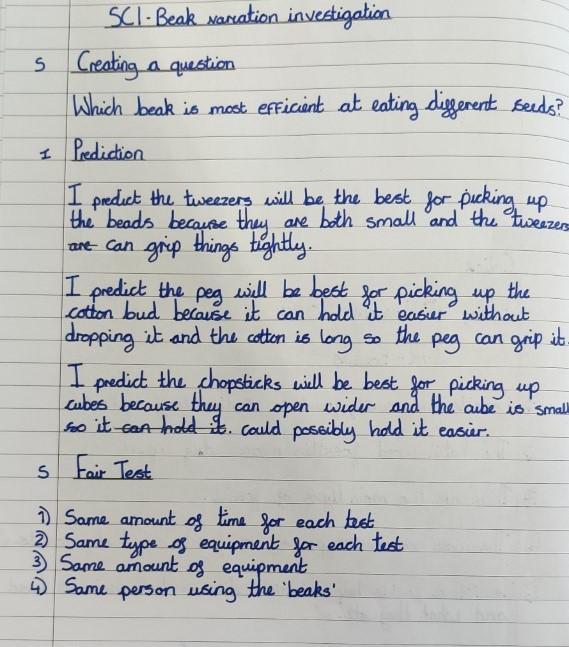 SCI - Beak variation investigation
S Creating a question
Which beak is most efficient at eating different seeds?
I Prediction
I predict the tweezers will be the best for picking up
the beads because they are both small and the tweezers
are can grip things tightly.
I predict the peg will be best for picking up the
cotton bud because it can hold it easier without
dropping it and the cotton is long so the peg can grip it.
I predict the chopsticks will be best for picking up
cubes because they can open wider and the cube is small
so it can hold it. could possibly hold it easier.
S Fair Test
1) Same amount of time for each test
2) Same type of equipment for each test
3) Same amount of equipment
4) Same person using the 'beaks'